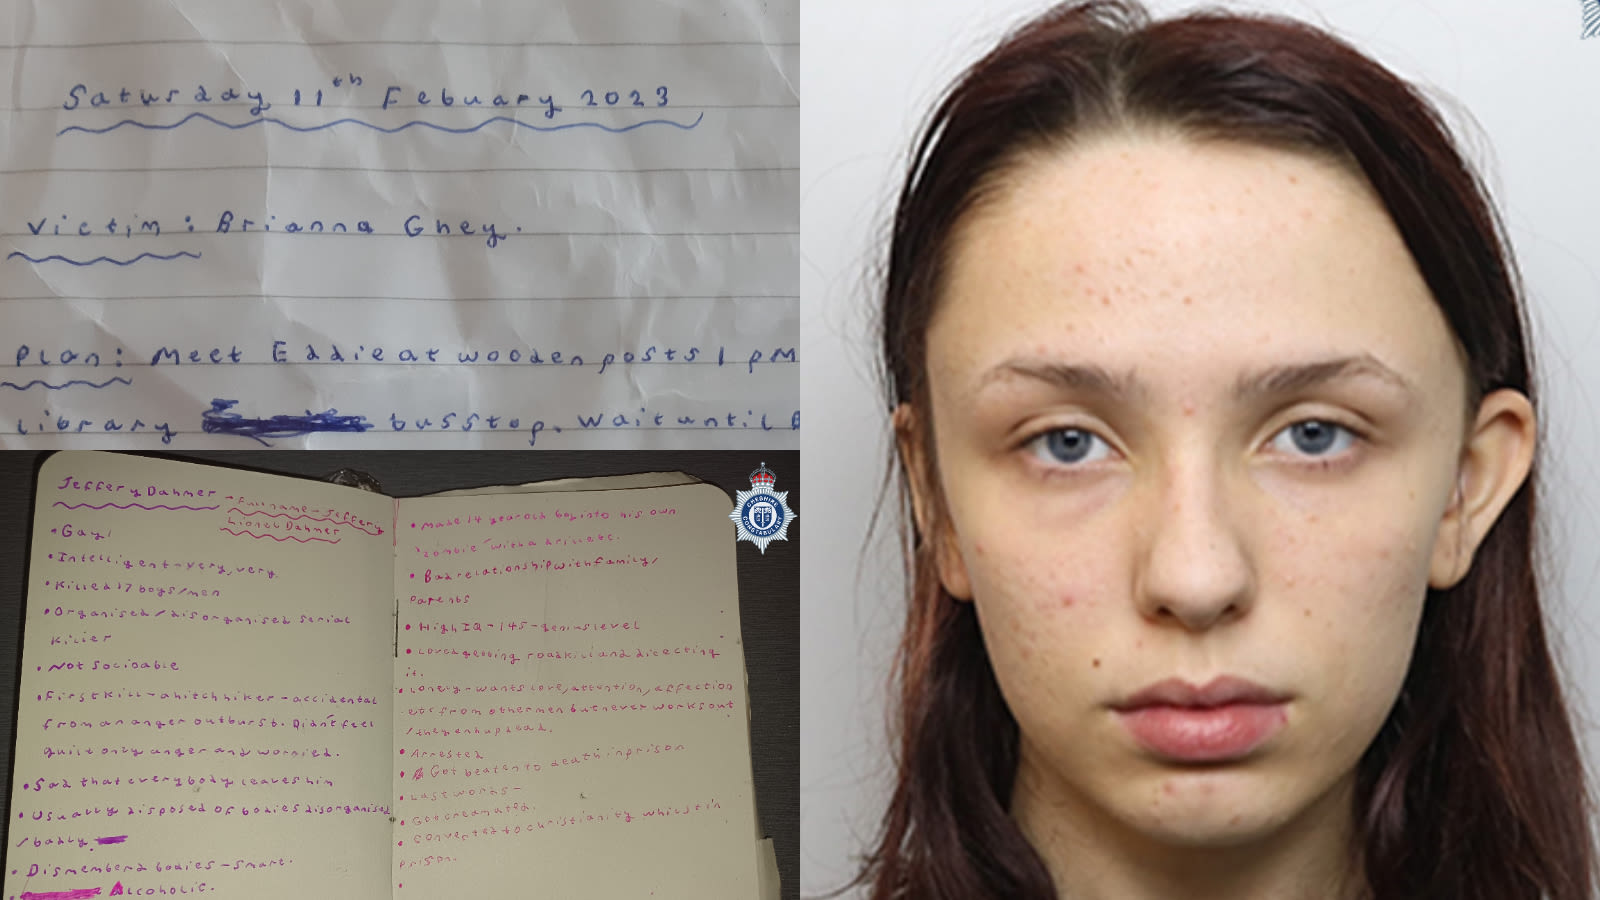 Satusday 11th Febuary 2023
Victim: Brianna Ghey.
Plan: Meet Eddie at wooden posts 1 pM
library bus stop. Wait until B
Jeffery Dahmer - full name - Jeffery
Lionel Dahmer
• Gay!
• Intelligent - very, very
• Killed 17 boys/men
• Organised/disorganised serial
killer
• Not socioable
• First kill - a hitchhiker - accidental
from an anger outburst. Didn't feel
guilt only anger and worried.
• Sad that everybody leaves him
• Usually disposed of bodies disorganised
/badly.
• Dismemberd bodies - smart.
• Alcoholic.
• Made 14 year old boy into his own
'zombie' with a drill etc.
• Bad relationship with family/
parents
• High IQ - 145 - genius level
• Loved getting roadkill and dicecting
it.
• Lonely - wants love, attention, affection
etc from other men but never works out
/they end up dead.
• Arrested
• Got beaten to death in prison
• Last words -
• Got creamated.
• Converted to christianity whilst in
prison.
•
CHESHIRE
CONSTABULARY